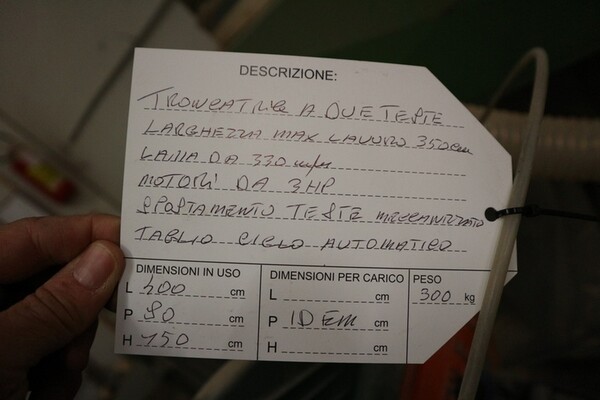 DESCRIZIONE:
TRONCATRICE A DUE TESTE
LARGHEZZA MAX LAVORO 350cm
LAMA DA 330 m/m
MOTORI DA 3HP
SPOSTAMENTO TESTE MECCANIZZATO
TAGLIO CICLO AUTOMATICO
DIMENSIONI IN USO
L 400 cm
P 90 cm
H 150 cm
DIMENSIONI PER CARICO
L cm
P IDEM cm
H cm
PESO
300 kg